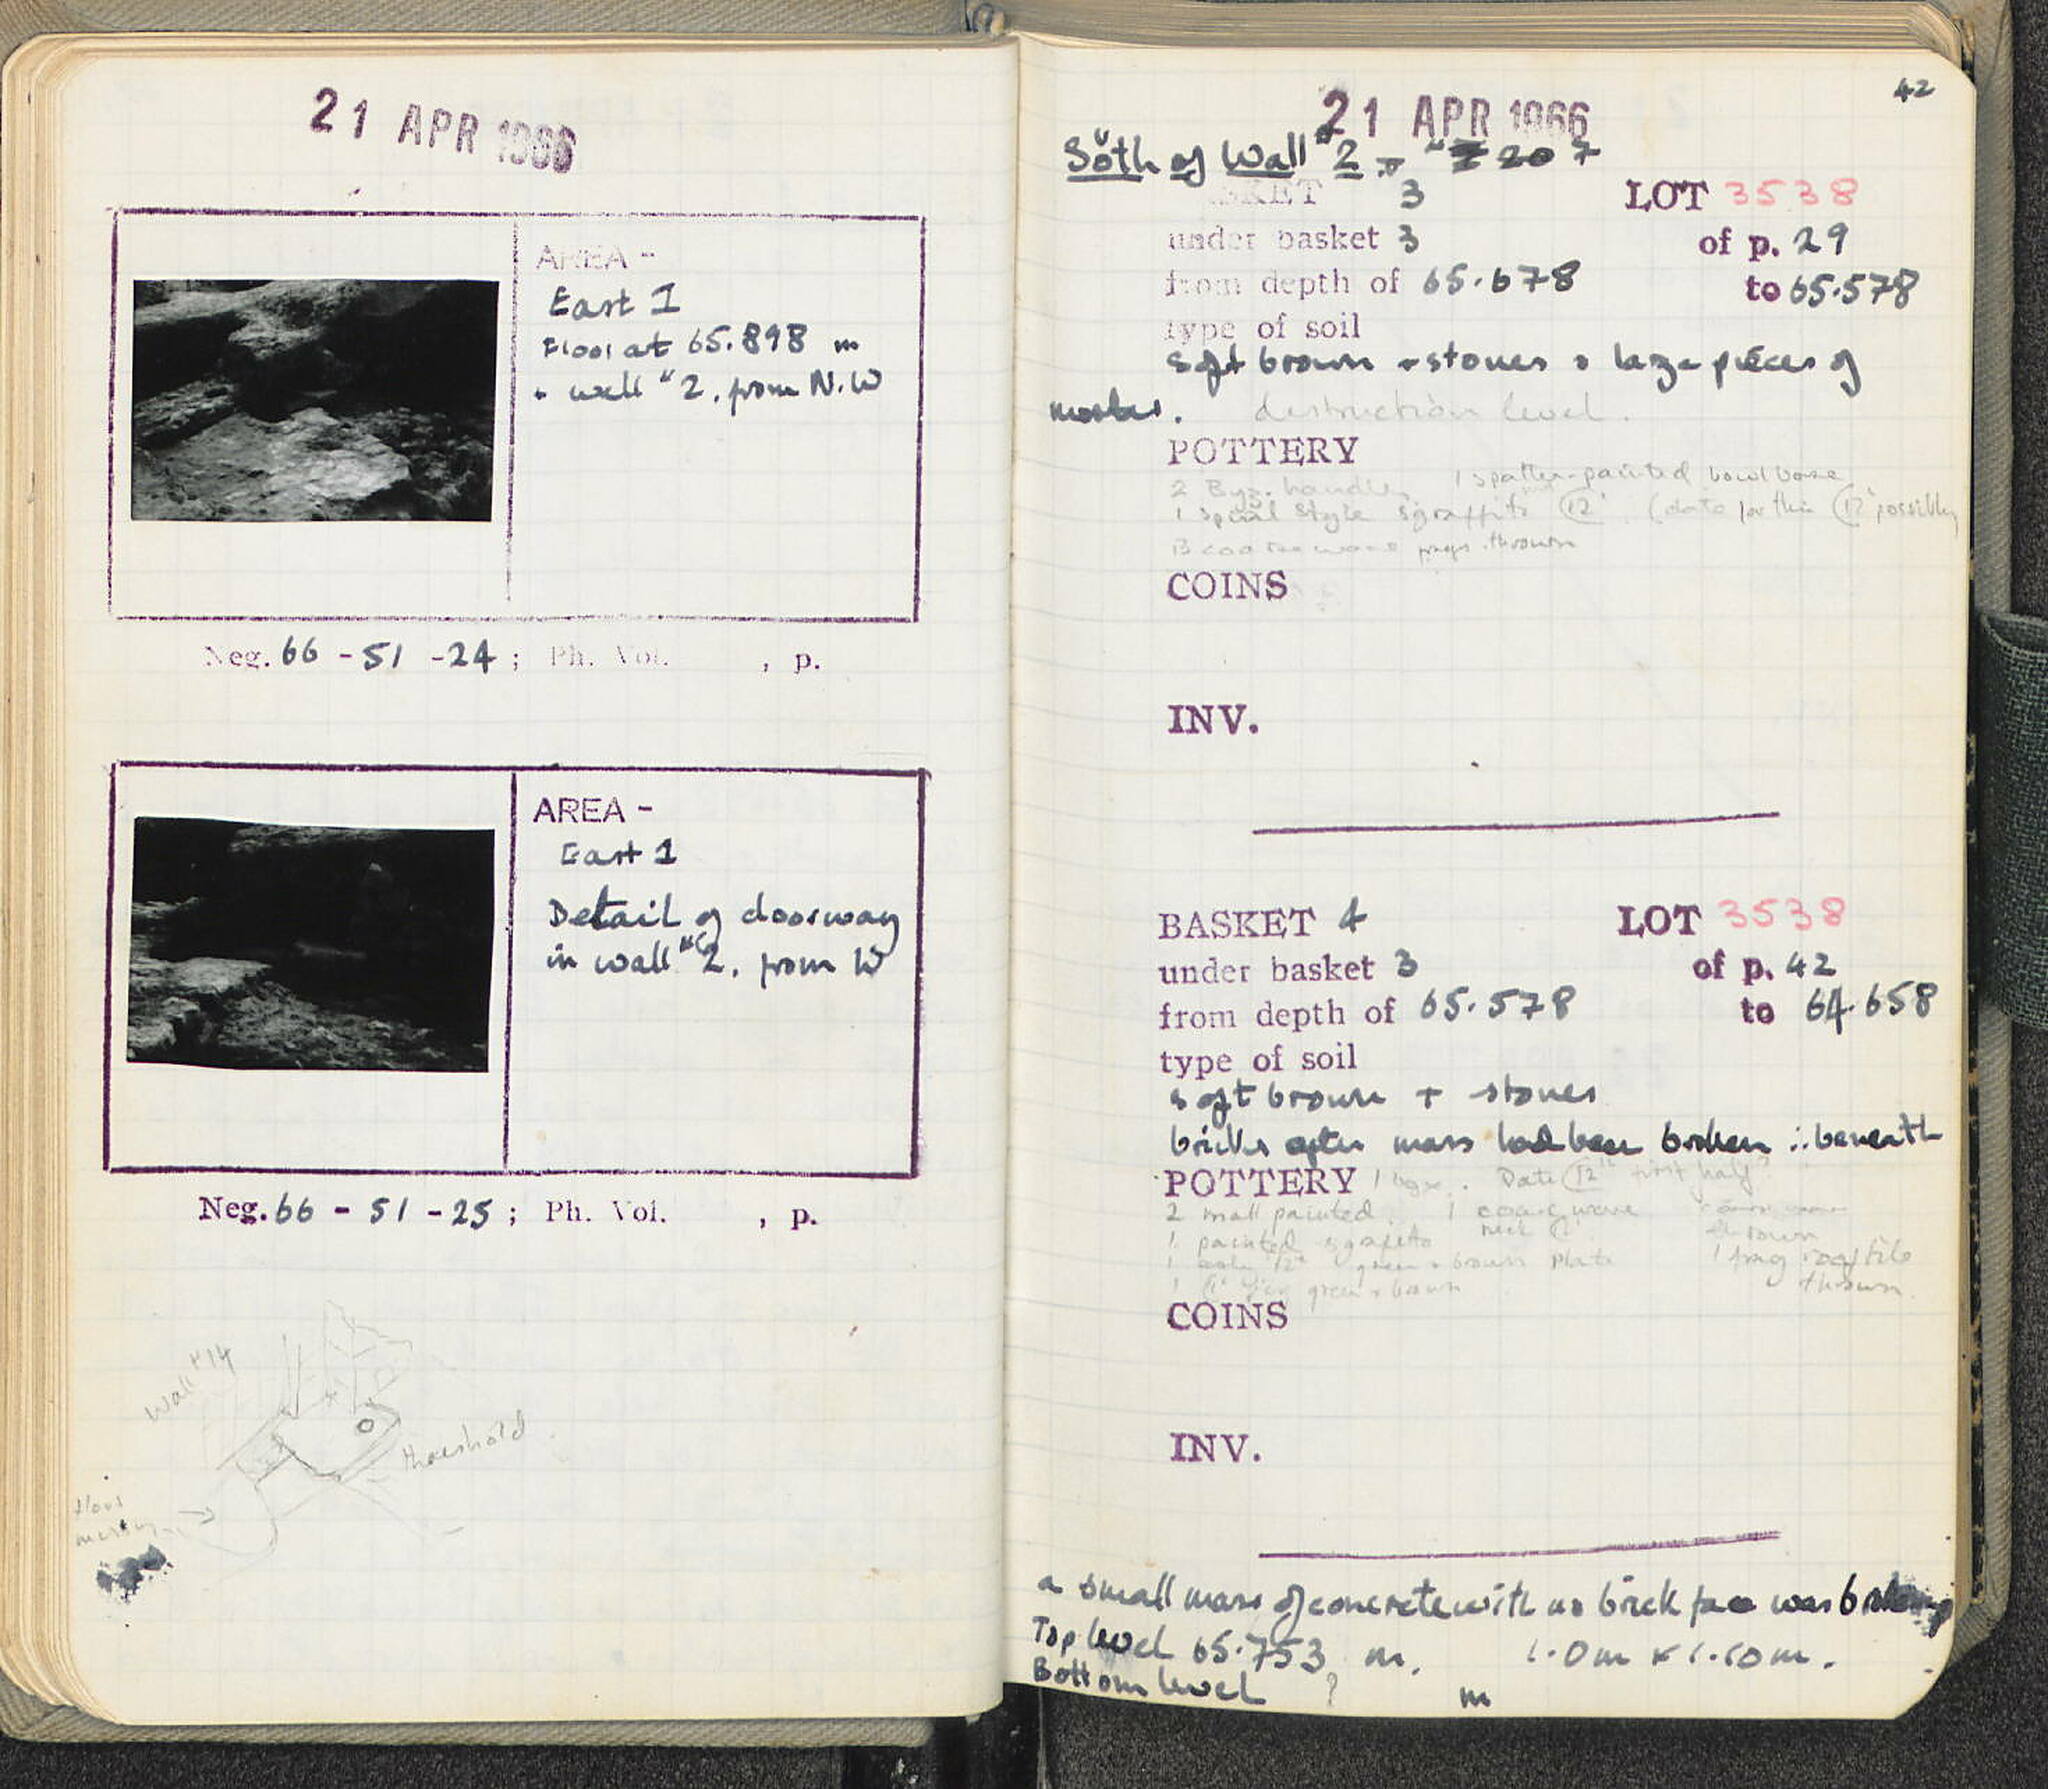 21 APR 1966
AREA -
East I
Floor at 65.898 m
+ wall #2, from N.W
Neg. 66 - 51 - 24 ; Ph. Vol. , p.
AREA -
East 1
Detail of doorway
in wall #2, from W
Neg. 66 - 51 - 25 ; Ph. Vol. , p.
Wall #14
threshold
floor
42
21 APR 1966
South of Wall #2 7
BASKET 3 LOT 3538
under basket 3 of p. 29
from depth of 65.678 to 65.578
type of soil
soft brown + stones + large pieces of
mortar. destruction level.
POTTERY
2 Byz. handles 1 spatter-painted bowl base
1 spiral style sgraffito 12 (date for this 12 possibly
13 coarse ware frags thrown
COINS
INV.
BASKET 4 LOT 3538
under basket 3 of p. 42
from depth of 65.578 to 64.658
type of soil
soft brown + stones
bricks after mass had been broken ∴ beneath
POTTERY Date 12th first half?
2 small painted. 1 coarse ware coarse ware
1 painted sgraffito neck thrown
1 12th green + brown plate 1 frag roof tile
1 green + brown thrown
COINS
INV.
a small mass of concrete with no brick face was broken up
Top level 65.753 m. 1.0m x 1.10m.
Bottom level ? m